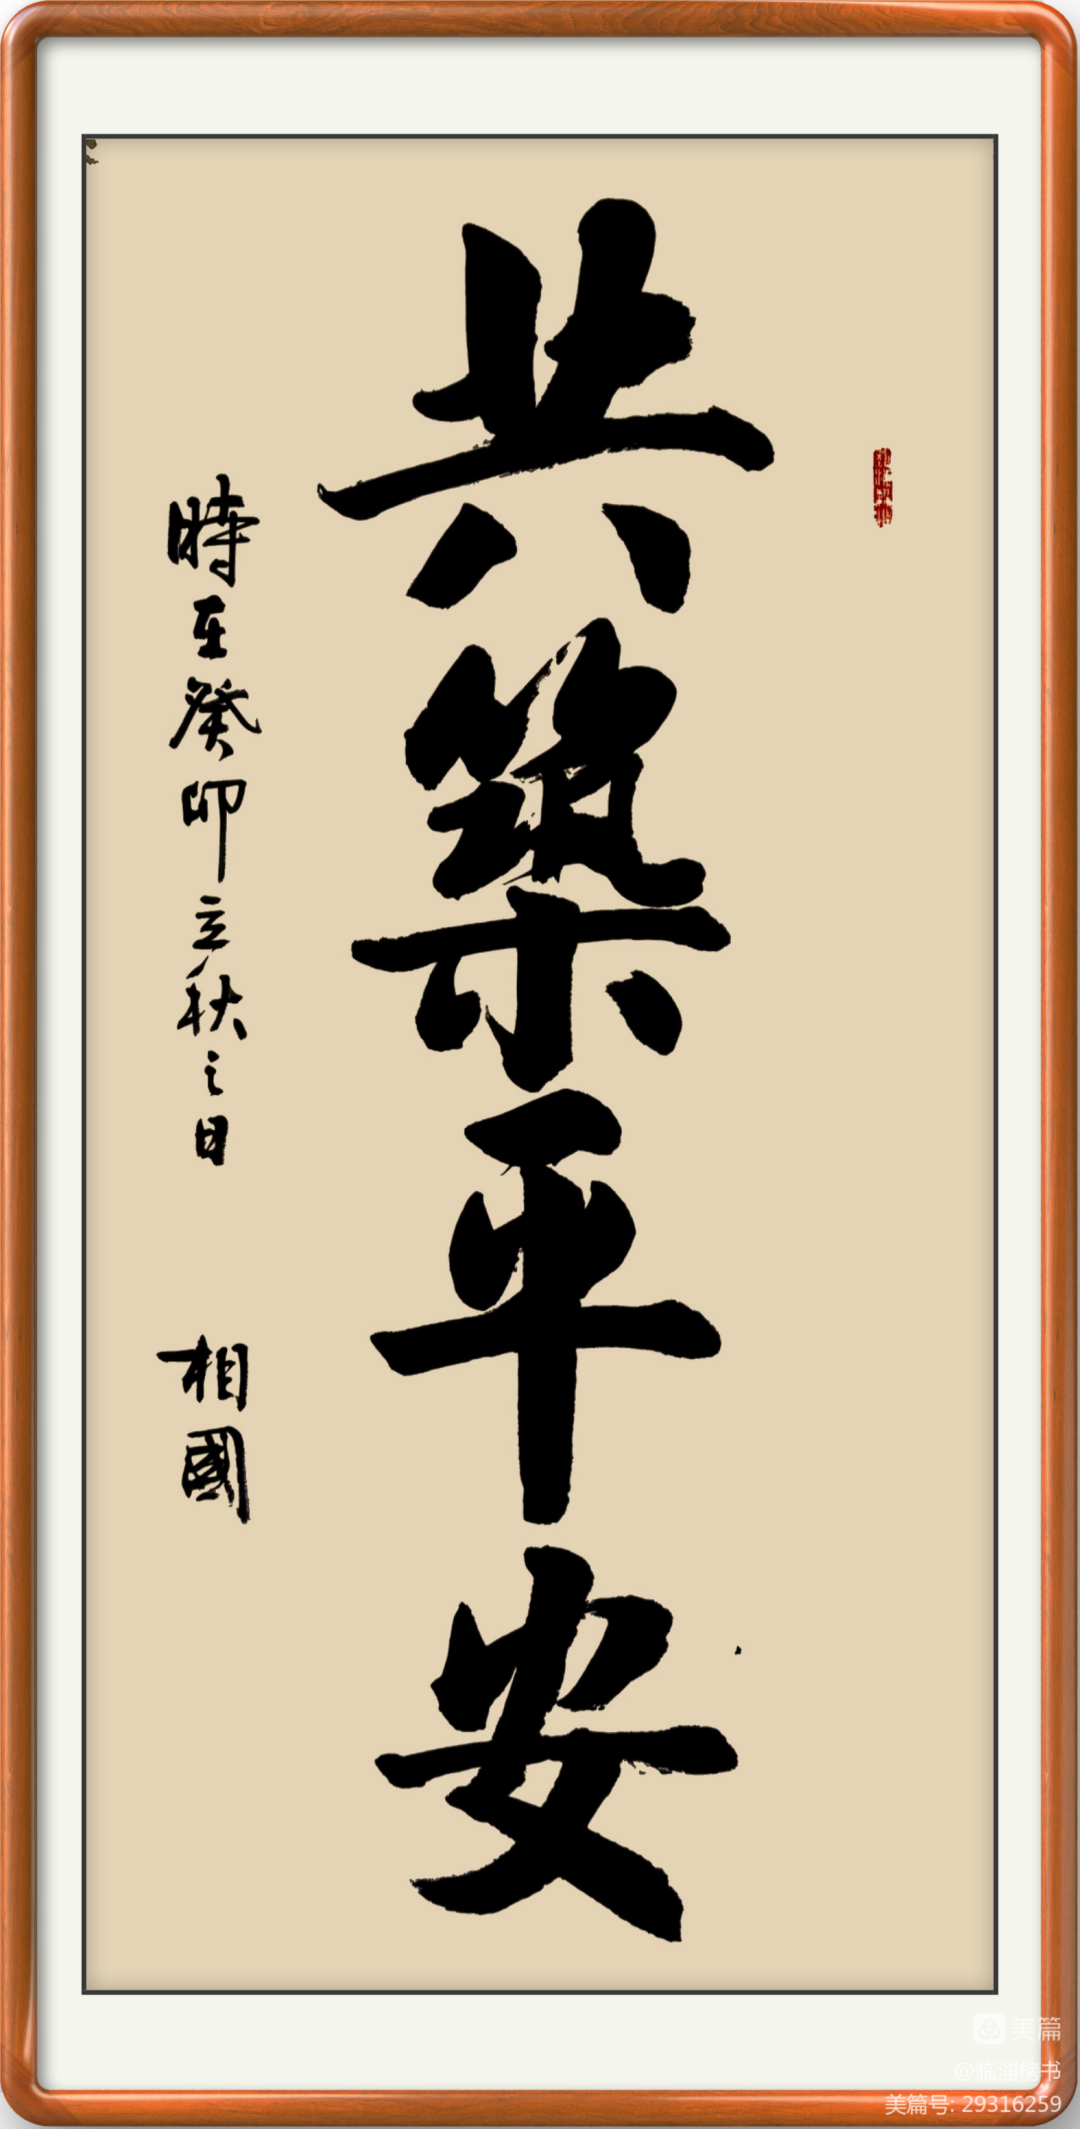 共築平安
時在癸卯立秋之日
相國
美篇
@临淄榜书
美篇号: 29316259